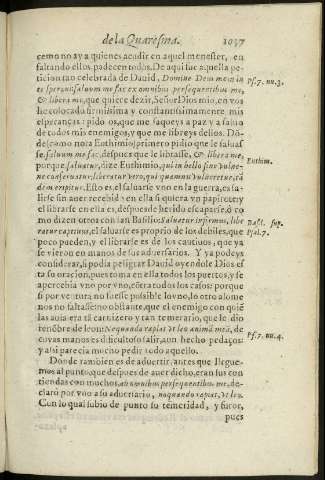 de la Quaresma. 1037
como no ay a quienes acudir en aquel menester, en
faltando ellos, padecen todos. De aqui fue aquella pe
ticion tan celebrada de Dauid, Domine Deus meus in
te speraui, saluum me fac ex omnibus persequentibus me,
& libera me, que quiere dezir, Señor Dios mio, en vos
he colocado firmissima y constantissimamente mis
esperanças: pido os, que me salueys a paz y a saluo
de todos mis enemigos, y que me libreys dellos. Dõ-
de (como nota Euthimio) lo primero pidio que le saluas
se, saluum me fac, despues que le librasse, & libera me,
porque, saluatur, dize Euthimio, qui in bello sine vulne-
re conseruatur: liberatur vero, qui quamuis vulneretur, tã
dem eripitur. Esto es, el saluarse vno en la guerra, es sa-
lirse sin auer recebido en ella si quiera vn papirote; y
el librarse en ella es, despues de herido escaparse, ò co
mo dizen otros con san Basilio: Saluatur infirmus, libe
ratur captiuus, el saluarse es proprio de los debiles, que
poco pueden, y el librarse es de los cautiuos, que ya
se vieron en manos de sus aduersarios. Y ya podeys
considerar, si podia peligrar Dauid oyendole Dios es
ta su oracion, pues toma en ella todos los puertos, y se
apercebia vno por vno, cõtra todos los casos: porque
si por ventura no fuesse possible lo vno, lo otro alome
nos no faltasse:
las auia era tã carnizero y tan temerario, que le dio
renõbre de leon: Nequando rapiat vt leo animã meã, de
cuyas manos es dificultoso salir, aun hecho pedaços:
y assi parecia mucho pedir todo aquello.
Donde tambien es de aduertir, antes que llegue-
mos al punto, que despues de auer dicho, eran sus con
tiendas con muchos, ab omnibus persequentibus me, de-
clarò por vno a su aduersario, nequando rapiat, vt leo.
Con lo qual subio de punto su temeridad, y furor,
pues
Ps. 7. nu. 3.
Euthim.
Basil. sup.
Psal. 7.
Ps. 7. nu. 4.